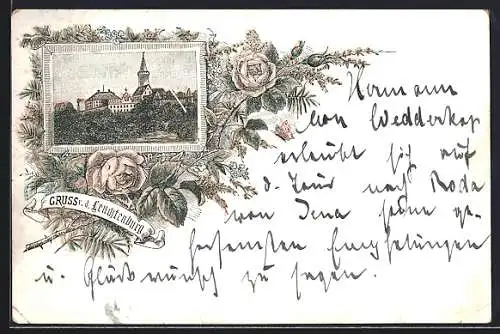 GRUSS v. d. Leuchtenburg
Hermann
von Wedderkop
erlaubt sich auf
d. Tour nach Roda
von Jena seine ge-
horsamsten Empfehlungen
u. Glückwünsch zu sagen.